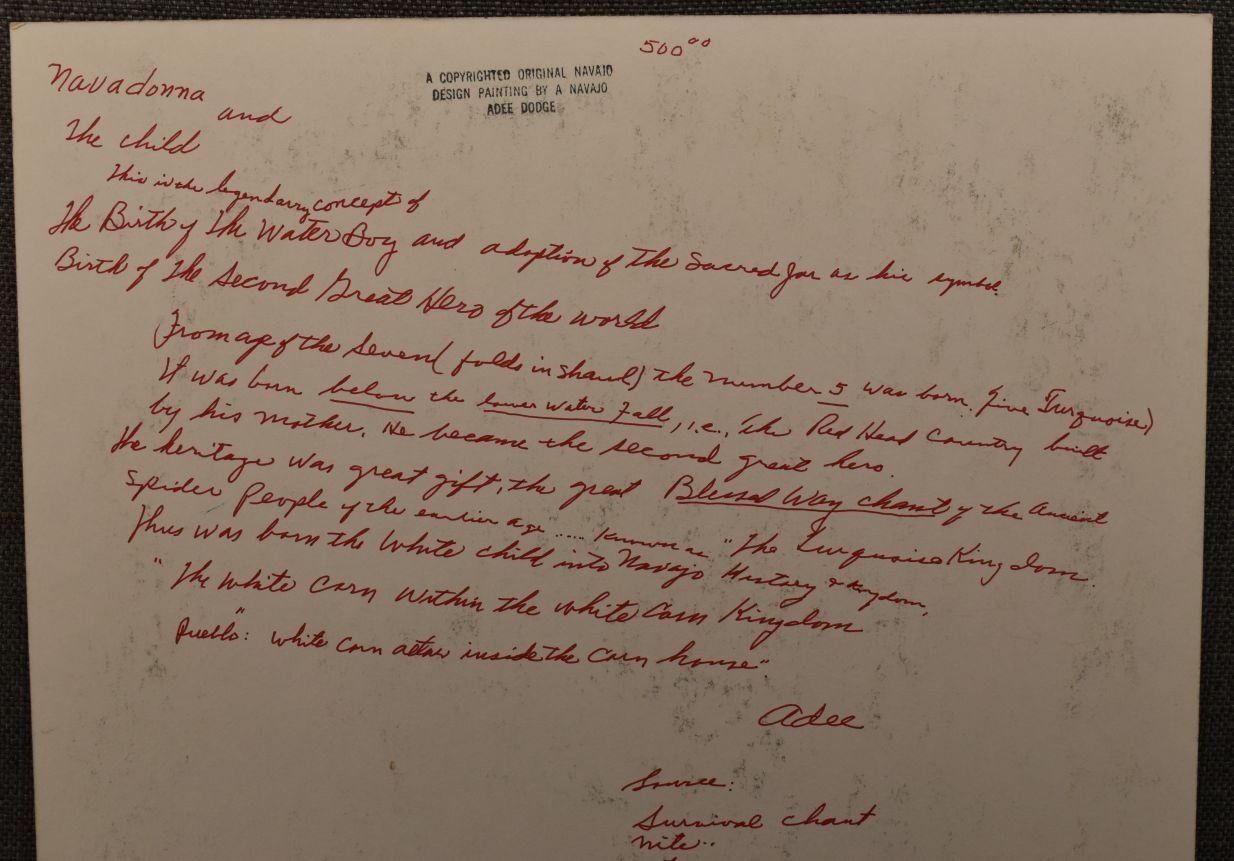 500⁰⁰
A COPYRIGHTED ORIGINAL NAVAJO
DESIGN PAINTING BY A NAVAJO
ADEE DODGE
Navadonna
and
The child
This is the legendarry concept of
The Birth of The Water Boy and adoption of the Sacred Jar as his symbol.
Birth of The Second Great Hero of the world
(From age of the Seven (folds in shawl) the number 5 was born, five Turquoise)
It was born below the lower water Fall, i.e., The Red Head Country built
by his mother. He became the second great hero.
The heritage was great gift, the great Blessed Way chant of the Ancient
Spider People of the earlier age .... known as "The Turquoise Kingdom.
Thus was born the White child into Navajo History & kingdom,
"The White Corn within the white Corn Kingdom
Pueblo: "White Corn altar inside the Corn house"
Adee
Source:
Survival chant
nite..